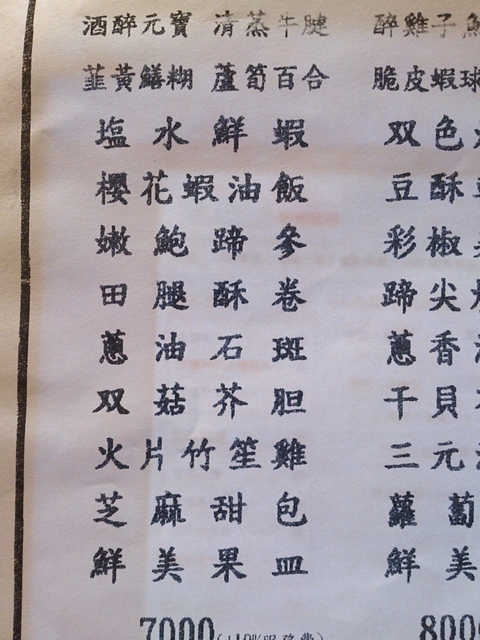 酒醉元寶 清蒸牛腱 醉雞子
韮黃鱔糊 蘆筍百合 脆皮蝦球
塩水鮮蝦 双色
櫻花蝦油飯 豆酥
嫩鮑蹄參 彩椒
田腿酥卷 蹄尖
蔥油石斑 蔥香
双菇芥胆 干貝
火片竹笙雞 三元
芝麻甜包 蘿蔔
鮮美果皿 鮮美
7000(+10%服務費) 800